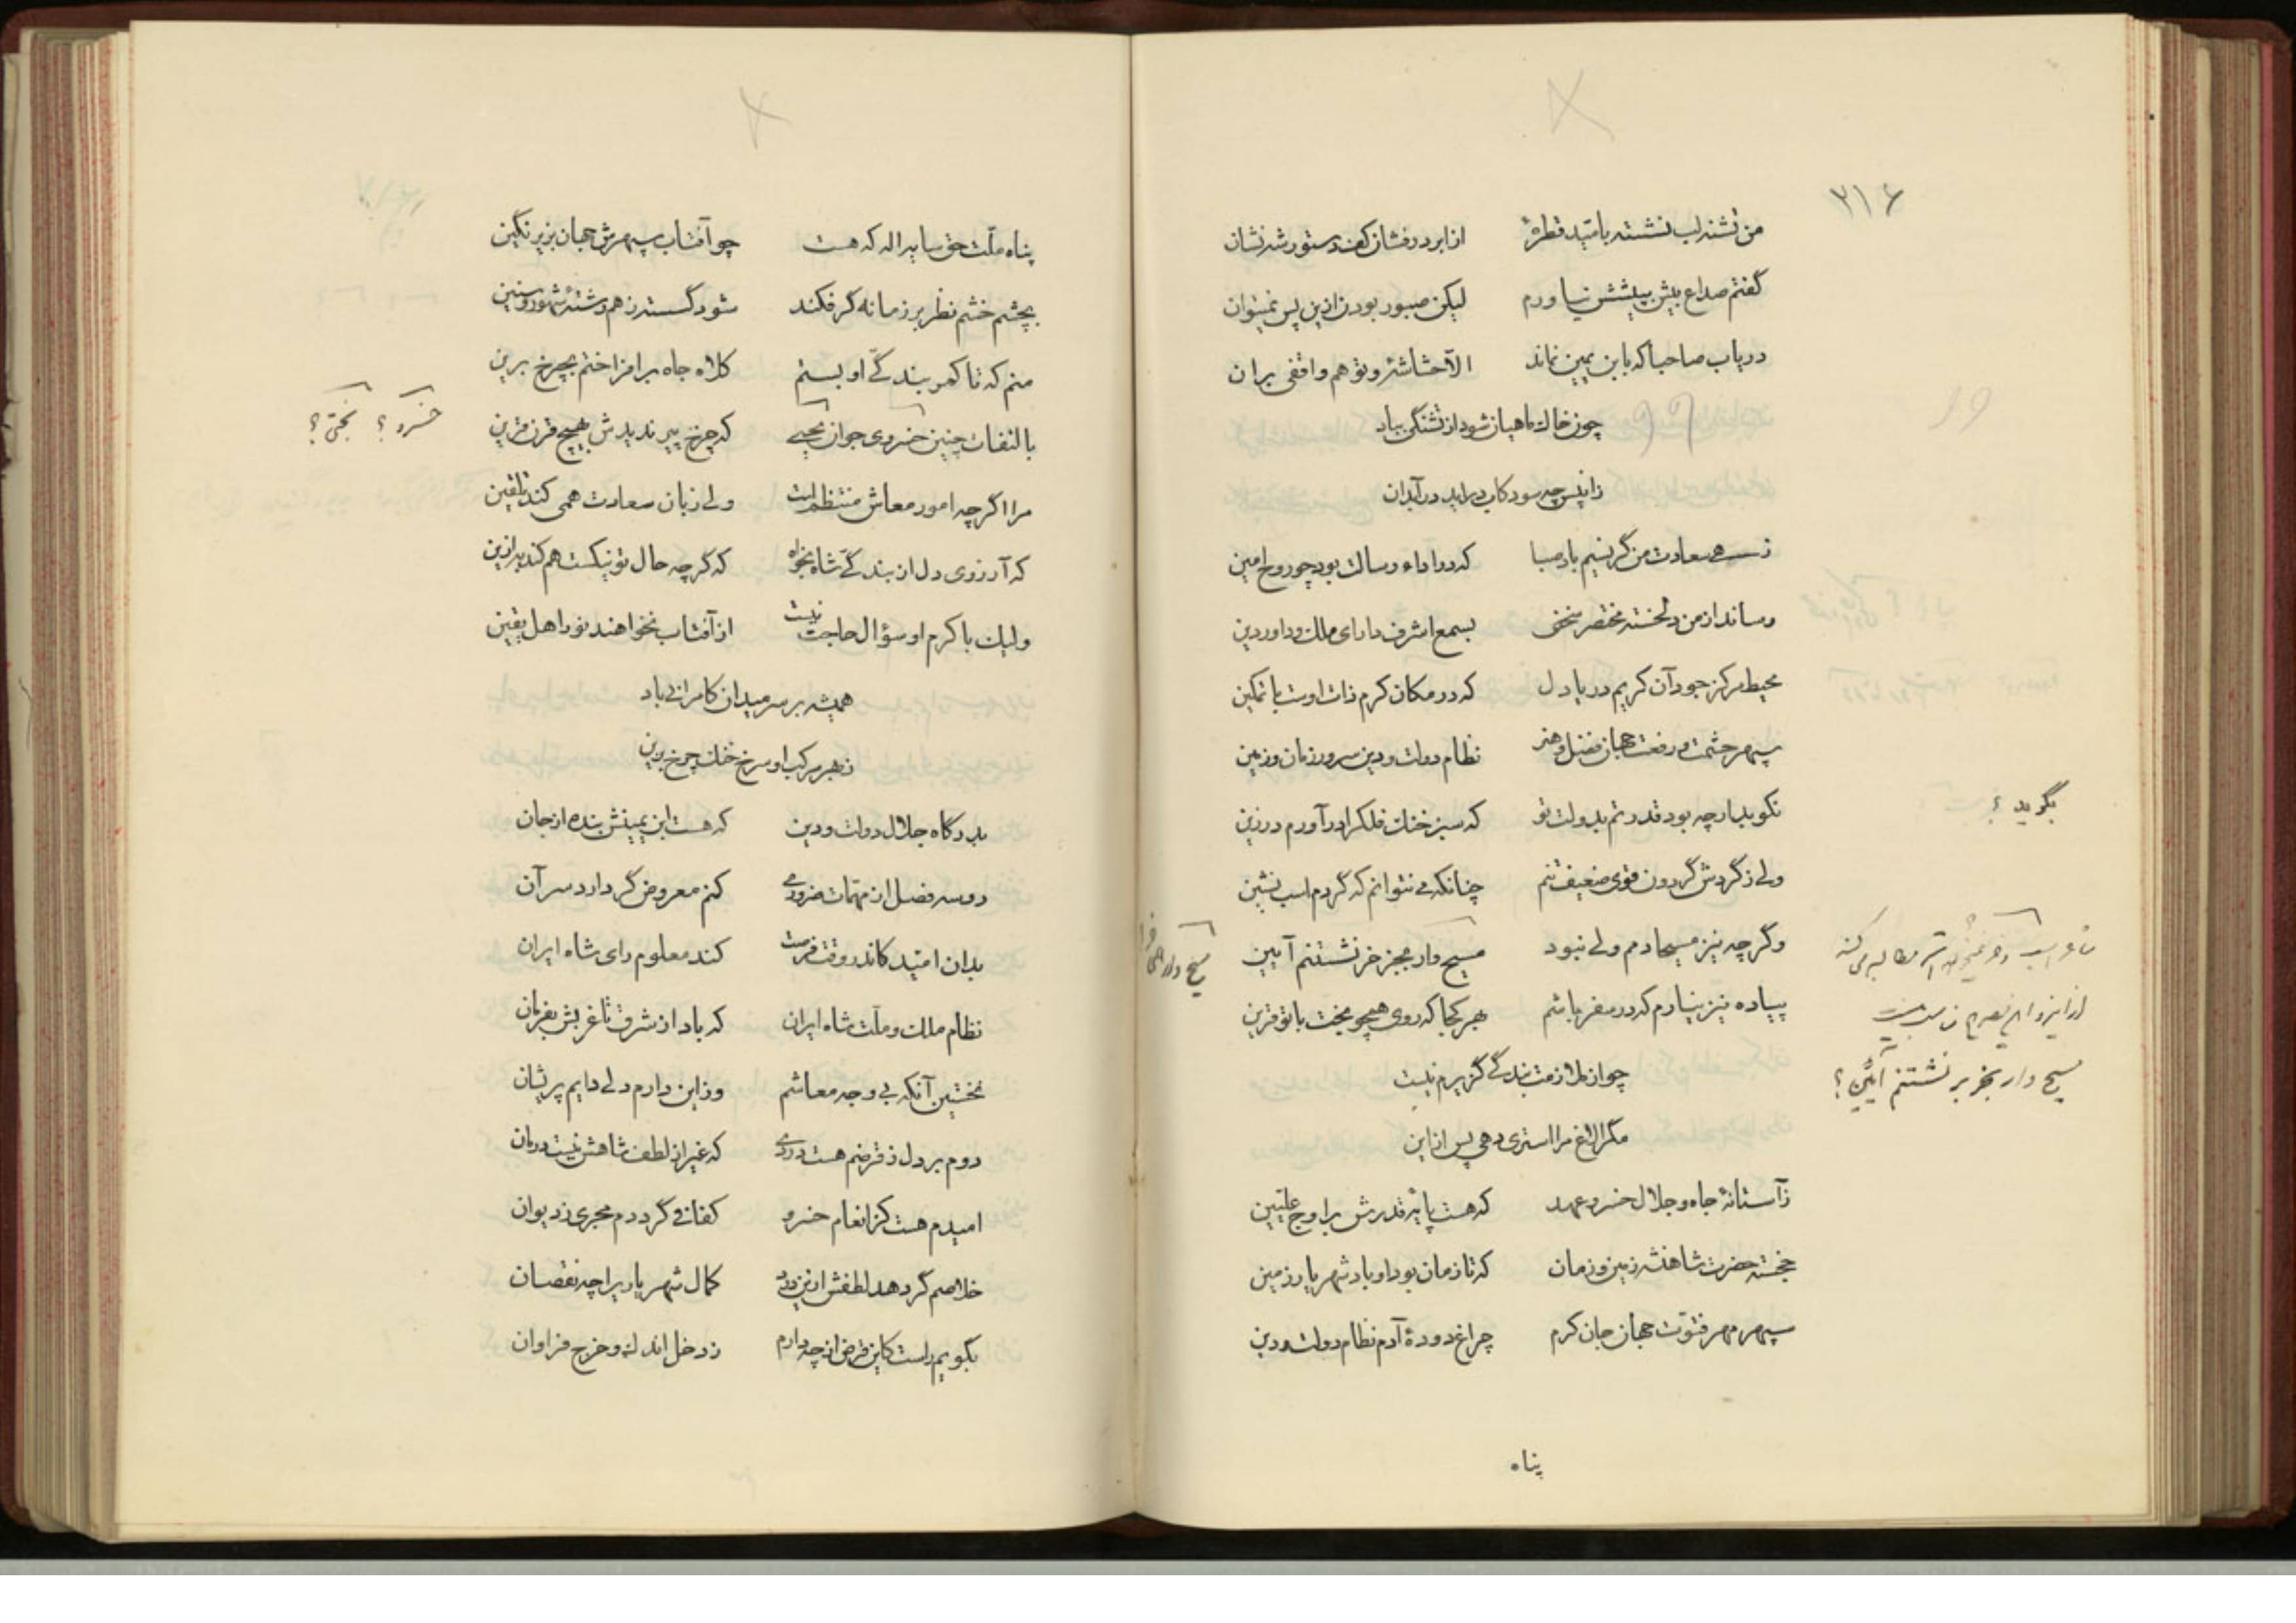 ۳۱۶
من تشنه لب نشسته بامّید قطرهٔ از ابر درفشان کف دستور شه نشان
گفتم صداع بیش به پیشش نیاورم لیکن صبور بودن ازین پس نمیتوان
دریاب صاحبا که بابن یمین نماند الا حشاشهٔ و تو هم واقفی بران
چون خاک ماهیان شود از تشنگی بباد
زان پس چه سود کاب درآید در آبدان
زهی سعادت من گر نسیم باد صبا که در اداء رسالت بود چو روح امین
رساند از من دلخسته مختصر سخنی بسمع اشرف دارای ملک و داور دین
محیط مرکز جود آن کریم دریا دل که در مکان کرم ذات اوست با تمکین
سپهر حشمت و رفعت جهان فضل و هنر نظام دولت و دین سرور زمان و زمین
نکوید ارچه بود قدرتم بدولت تو که سبز خنک فلک را درآورم در زین
ولی ز گردش گردون قوی ضعیف تنم چنانکه می نتوانم که گردم اسب نشین
وگرچه نیز مسیحا دمم ولی نبود مسیح وار بجز خر نشستنم آیین
پیاده نیز نیارم که در سفر باشم بهر کجا که روی همچو بخت با تو قرین
چو از ملازمت بندگی گزیرم نیست
مگر الاغ مرا استری دهی پس ازین
ز آستانهٔ جاه و جلال خسرو عهد که هست پایهٔ قدرش بر اوج علیین
خجسته حضرت شاهنشه زمین و زمان که تا زمان بود او باد شهریار زمین
سپهر مهر فتوت جهان جان کرم چراغ دودهٔ آدم نظام دولت و دین
پناه
بگوید ؟
مسیح وار بخر بر نشستنم آئین ؟
پناه ملّت حق سایه اله که هست چو آفتاب سپهرش جهان بزیر نگین
بچشم خشم نظر بر زمانه گر فکند شود گسسته ز هم رشتهٔ شهور و سنین
منم که تا کمر بندگیّ او بستم کلاه جاه برافراختم بچرخ برین
بالتفات چنین خسروی جوان بختی که چرخ پیر ندیدش بهیچ قرن قرین
خسرو ؟ بختی ؟
مرا اگرچه امور معاش منتظم است ولی زبان سعادت همی کند تلقین
که آرزوی دل از بندگیّ شاه بخواه که گرچه حال تو نیکست هم کند به ازین
ولیک با کرم او سؤال حاجت نیست از آفتاب نخواهند نور اهل یقین
همیشه بر سر میدان کامرانی باد
بزیر مرکب او سرخ خنک چرخ برین
بدرگاه جلال دولت و دین که هست ابن یمینش بنده از جان
دو سه فصل از مهمّات ضروری کنم معروض گر دارد سر آن
بدان امّید کاندر وقت فرصت کند معلوم رای شاه ایران
نظام ملک و ملّت شاه ایران که باد از شرق تا غربش بفرمان
نخستین آنکه بی وجه معاشم وز این دارم دلی دایم پریشان
دوم بر دل ز قرضم هست دردی که غیر از لطف شاهش نیست درمان
امیدم هست کز انعام خسرو کفافی گرددم مجری ز دیوان
خلاصم گر دهد لطفش ازین درد کمال شهریاری را چه نقصان
بگویم راست کاین قرض از چه دارم ز دخل اندک و خرج فراوان